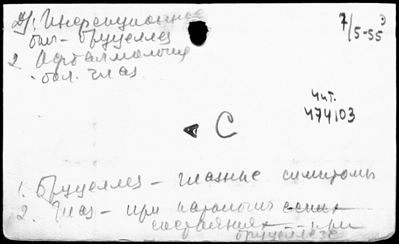 Д/: Инфекционные
бол.- бруцеллез
2 Офтальмология
- бол. глаз
7/5-55
Чит.
474103
С
1. Бруцеллез - глазные симптомы
2. Глаз - при патологич.
состояниях - при
бруцеллезе